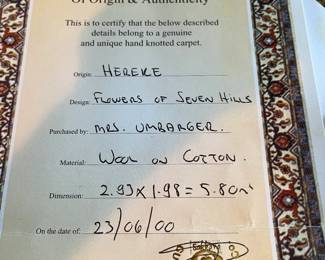 Of Origin & Authenticity
This is to certify that the below described
details belong to a genuine
and unique hand knotted carpet.
Origin: HEREKE
Design: FLOWERS OF SEVEN HILLS
Purchased by: MRS. UMBARGER.
Material: WOOL ON COTTON.
Dimension: 2.93 x 1.98 = 5.80m²
On the date of: 23/06/00